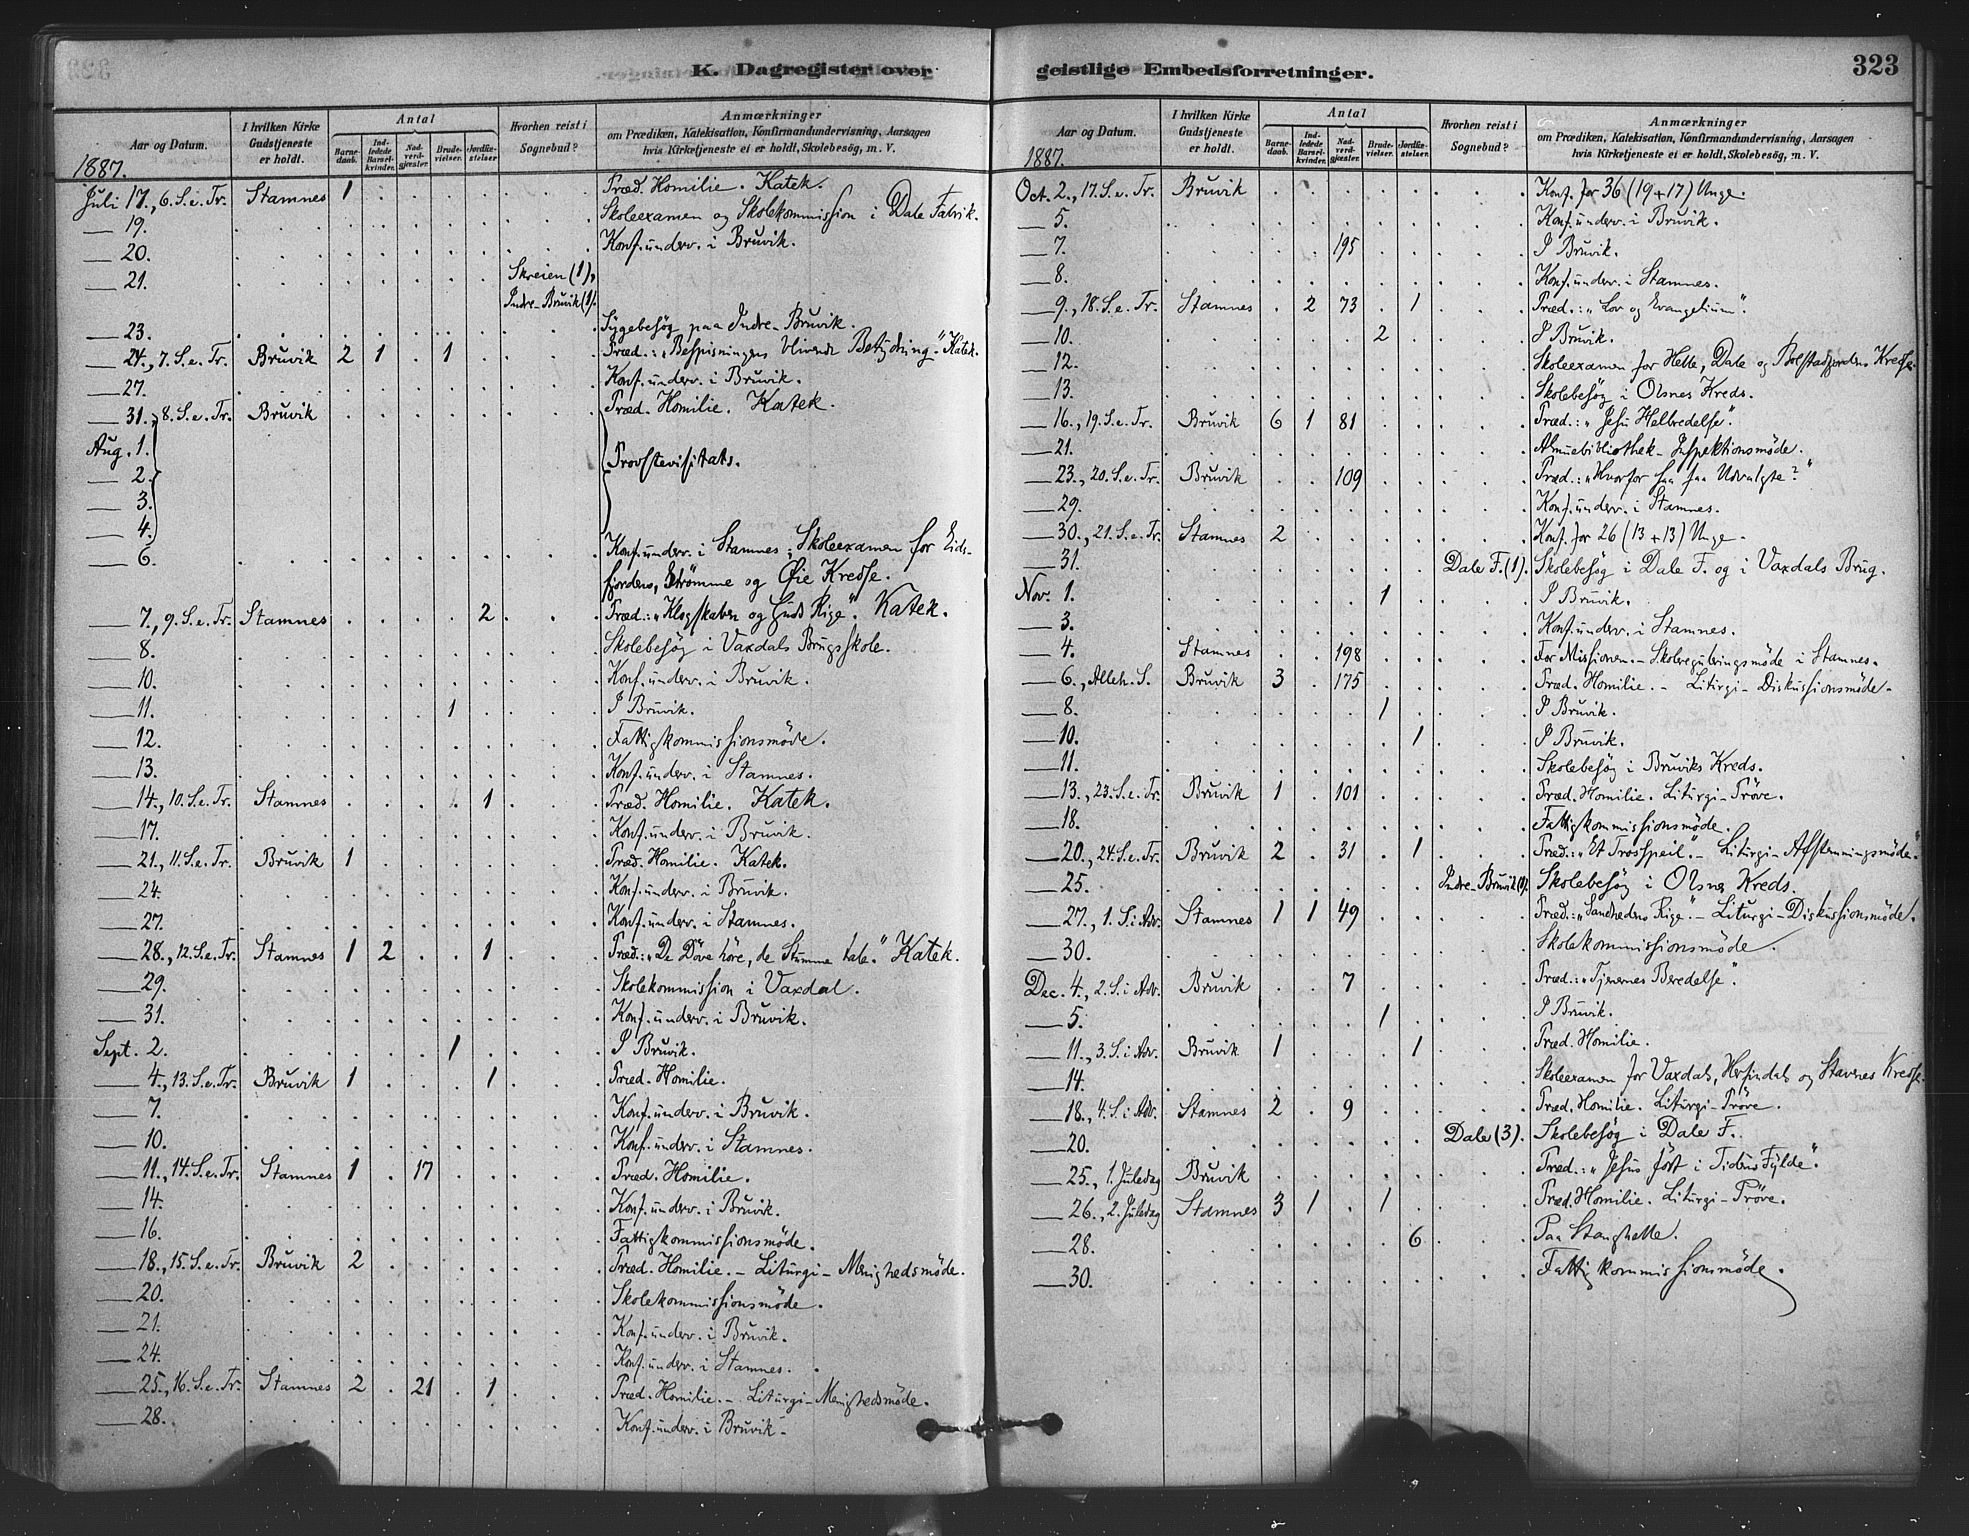 K. Dagregister over geistlige Embedsforretninger. 323
Aar og Datum. I hvilken Kirke Gudstjeneste er holdt. Antal Barnedaab. Indledede Barselkvinder. Nadverdgjæster. Brudevielser. Jordfæstelser Hvorhen reist i Sognebud? Anmærkninger om Prædiken, Katekisation, Konfirmandundervisning, Aarsagen hvis Kirketjeneste ei er holdt, Skolebesøg, m. V.
1887.
Juli 17., 6. S. e. Tr. Stamnes 1 . . . . Præd. Homilie. Katek.
— 19. Skoleexamen og Skolekommission i Dale Fabrik.
— 20. Konf. underv. i Bruvik.
— 21. Skreien (1),
Indre-Bruvik (1).
— 23. Sygebesøg paa Indre-Bruvik.
— 24., 7. S. e. Tr. Bruvik 2 1 . 1 . Præd.: „Bespisningens blivende Betydning." Katek.
— 27. Konf. underv. i Bruvik.
— 31., 8. S. e. Tr. Bruvik Præd. Homilie. Katek.
Aug. 1.
— 2. Provstevisitats.
— 3.
— 4.
— 6. Konf. underv. i Stamnes; Skoleexamen for Eids-
fjordens, Strømme og Øie Kredse.
— 7., 9. S. e. Tr. Stamnes . . . . 2 Præd.: „Klogskaben og Guds Rige". Katek.
— 8. Skolebesøg i Vaxdals Brugsskole.
— 10. Konf. underv. i Bruvik.
— 11. . . . 1 . I Bruvik.
— 12. Fattigkommissionsmøde.
— 13. Konf. underv. i Stamnes.
— 14., 10. S. e. Tr. Stamnes . . . . 1 Præd. Homilie. Katek.
— 17. Konf. underv. i Bruvik.
— 21., 11. S. e. Tr. Bruvik 1 . . . . Præd. Homilie. Katek.
— 24. Konf. underv. i Bruvik.
— 27. Konf. underv. i Stamnes.
— 28., 12. S. e. Tr. Stamnes 1 2 . . 1 Præd.: „De Døve høre, de Stumme tale." Katek.
— 29. Skolekommission i Vaxdal.
— 31. Konf. underv. i Bruvik.
Sept. 2. . . . 1 . I Bruvik.
— 4., 13. S. e. Tr. Bruvik 1 . . . 1 Præd. Homilie.
— 7. Konf. underv. i Bruvik.
— 10. Konf. underv. i Stamnes.
— 11., 14. S. e. Tr. Stamnes 1 . 17 . . Præd. Homilie.
— 14. Konf. underv. i Bruvik.
— 16. Fattigkommissionsmøde.
— 18., 15. S. e. Tr. Bruvik 2 . . . . Præd. Homilie. – Liturgi-Menighedsmøde.
— 20. Skolekommissionsmøde.
— 21. Konf. underv. i Bruvik.
— 24. Konf. underv. i Stamnes.
— 25., 16. S. e. Tr. Stamnes 2 . 21 . 1 Præd. Homilie. – Liturgi-Menighedsmøde.
— 28. Konf. underv. i Bruvik.
Aar og Datum. I hvilken Kirke Gudstjeneste er holdt. Antal Barnedaab. Indledede Barselkvinder. Nadverdgjæster. Brudevielser. Jordfæstelser. Hvorhen reist i Sognebud? Anmærkninger om Prædiken, Katekisation, Konfirmandundervisning, Aarsagen hvis Kirketjeneste ei er holdt, Skolebesøg, m. V.
1887.
Oct. 2., 17. S. e. Tr. Bruvik Konf. for 36 (19+17) Unge.
— 5. Konf. underv. i Bruvik.
— 7. . . 195 . . I Bruvik.
— 8. Konf. underv. i Stamnes.
— 9., 18. S. e. Tr. Stamnes . 2 73 . 1 Præd.: „Lov og Evangelium".
— 10. . . . 2 . I Bruvik.
— 12. Skoleexamen for Helle, Dale og Bolstadfjordens Kredse.
— 13. Skolebesøg i Olsnes Kreds.
— 16., 19. S. e. Tr. Bruvik 6 1 81 . . Præd.: „Jesu Helbredelse".
— 21. Almuebibliothek-Inspektionsmøde.
— 23., 20. S. e. Tr. Bruvik . . 109 . . Præd.: „Hvorfor saa faa Udvalgte?"
— 29. Konf. underv. i Stamnes.
— 30., 21. S. e. Tr. Stamnes 2 . . . . Konf. for 26 (13+13) Unge.
— 31. Dale F. (1). Skolebesøg i Dale F. og i Vaxdals Brug.
Nov. 1. . . . 1 . I Bruvik.
— 3. Konf. underv. i Stamnes.
— 4. Stamnes . . 198 . . For Missionen. – Skolereguleringsmøde i Stamnes.
— 6., Alleh. S. Bruvik 3 . 175 . . Præd. Homilie. – Liturgi-Diskussionsmøde.
— 8. . . . 1 . I Bruvik.
— 10. . . . . 1 I Bruvik.
— 11. Skolebesøg i Bruviks Kreds.
— 13., 23. S. e. Tr. Bruvik 1 . 101 . . Præd. Homilie. Liturgi-Prøve.
— 18. Fattigkommissionsmøde.
— 20., 24. S. e. Tr. Bruvik 2 . 31 . 1 Præd.: „Et Trosspeil". – Liturgi-Afstemningsmøde.
— 25. Indre-Bruvik (1). Skolebesøg i Olsnes Kreds.
— 27., 1. S. i Adv. Stamnes 1 1 49 . . Præd.: „Sandhedens Rige". – Liturgi-Diskussionsmøde.
— 30. Skolekommissionsmøde.
Dec. 4., 2. S. i Adv. Bruvik . . 7 . . Præd.: „Tjenernes Beredelse".
— 5. . . . 1 . I Bruvik.
— 11., 3. S. i Adv. Bruvik 1 . . . 1 Præd. Homilie.
— 14. Skoleexamen for Vaxdals, Herfindals og Stavnes Kredse.
— 18., 4. S. i Adv. Stamnes 2 . 9 . . Præd. Homilie. Liturgi-Prøve.
— 20. Dale (3). Skolebesøg i Dale F.
— 25., 1. Juledag Bruvik Præd.: „Jesus født i Tidens Fylde".
— 26., 2. Juledag Stamnes 3 1 . 1 . Præd. Homilie. Liturgi-Prøve.
— 28. . . . . 6 Paa Stanghelle.
— 30. Fattigkommissionsmøde.